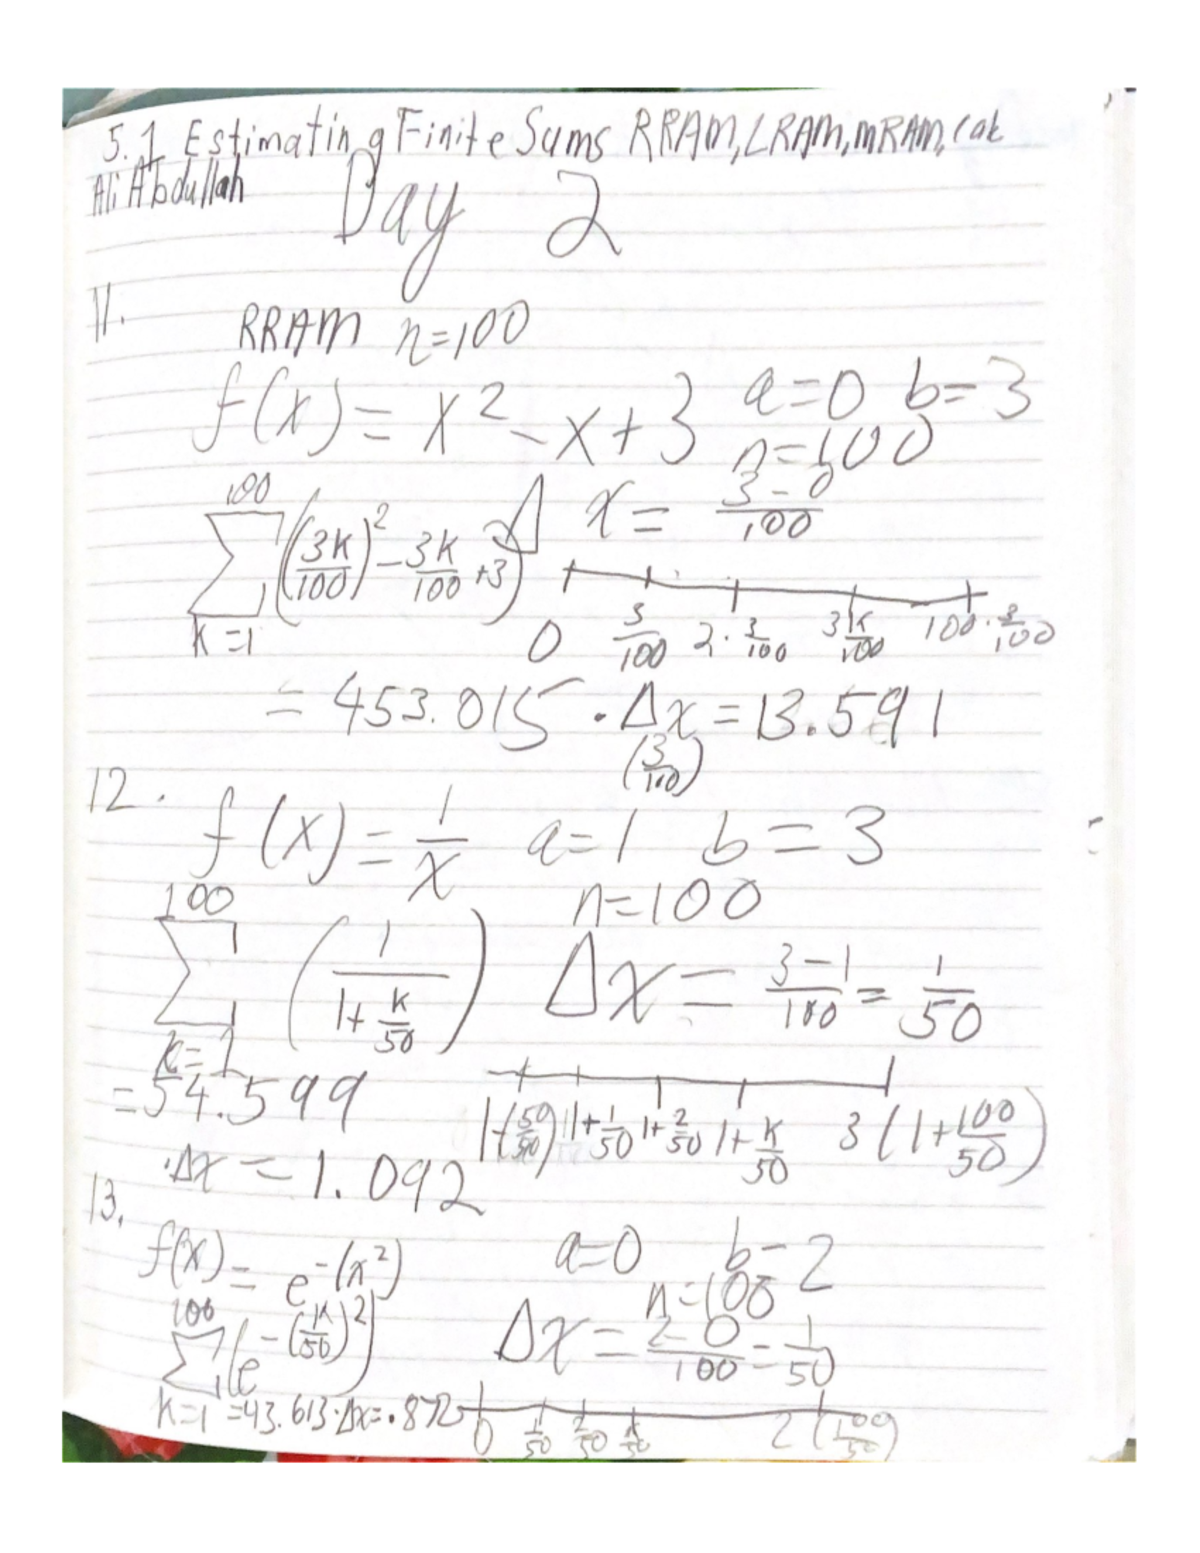 5.1 Estimating Finite Sums RRAM, LRAM, mRAM,
Ali Abdullah
Day 2
11.
RRAM n=100
f(x) = x² - x + 3 a=0 b=3
n=100
100 Σ k=1 ((3k/100)² - 3k/100 + 3) Δx = 3-0/100
0 3/100 2·3/100 3k/100 100·3/100
= 453.015 · Δx = 13.591
(3/100)
12.
f(x) = 1/x a=1 b=3
n=100
100 Σ k=1 (1/(1+k/50)) Δx = 3-1/100 = 1/50
= 54.599
1+1/50 1+2/50 1+k/50 3 (1+100/50)
·Δx = 1.092
13.
f(x) = e^-(x²) a=0 b=2
n=100
100 Σ k=1 (e^-(k/50)²) Δx = 2-0/100 = 1/50
=43.613·Δx=.872
0 1/50 2/50 k/50 2 (100/50)